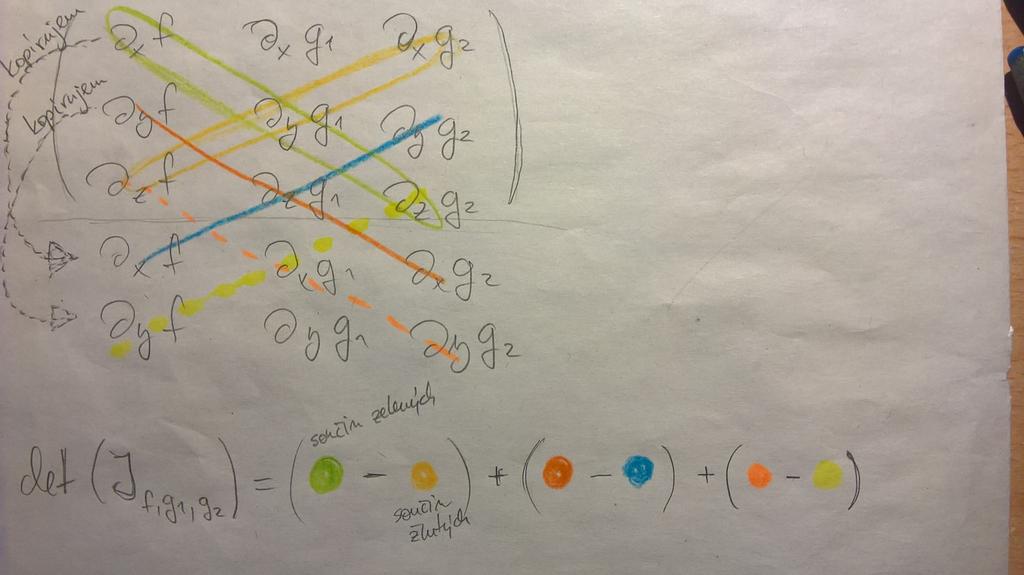 kopírujem
kopírujem
∂x f ∂x g1 ∂x g2
∂y f ∂y g1 ∂y g2
∂z f ∂z g1 ∂z g2
∂x f ∂x g1 ∂x g2
∂y f ∂y g1 ∂y g2
součin zelených
det (J f,g1,g2) = ( - ) + ( - ) + ( - )
součin
žlutých